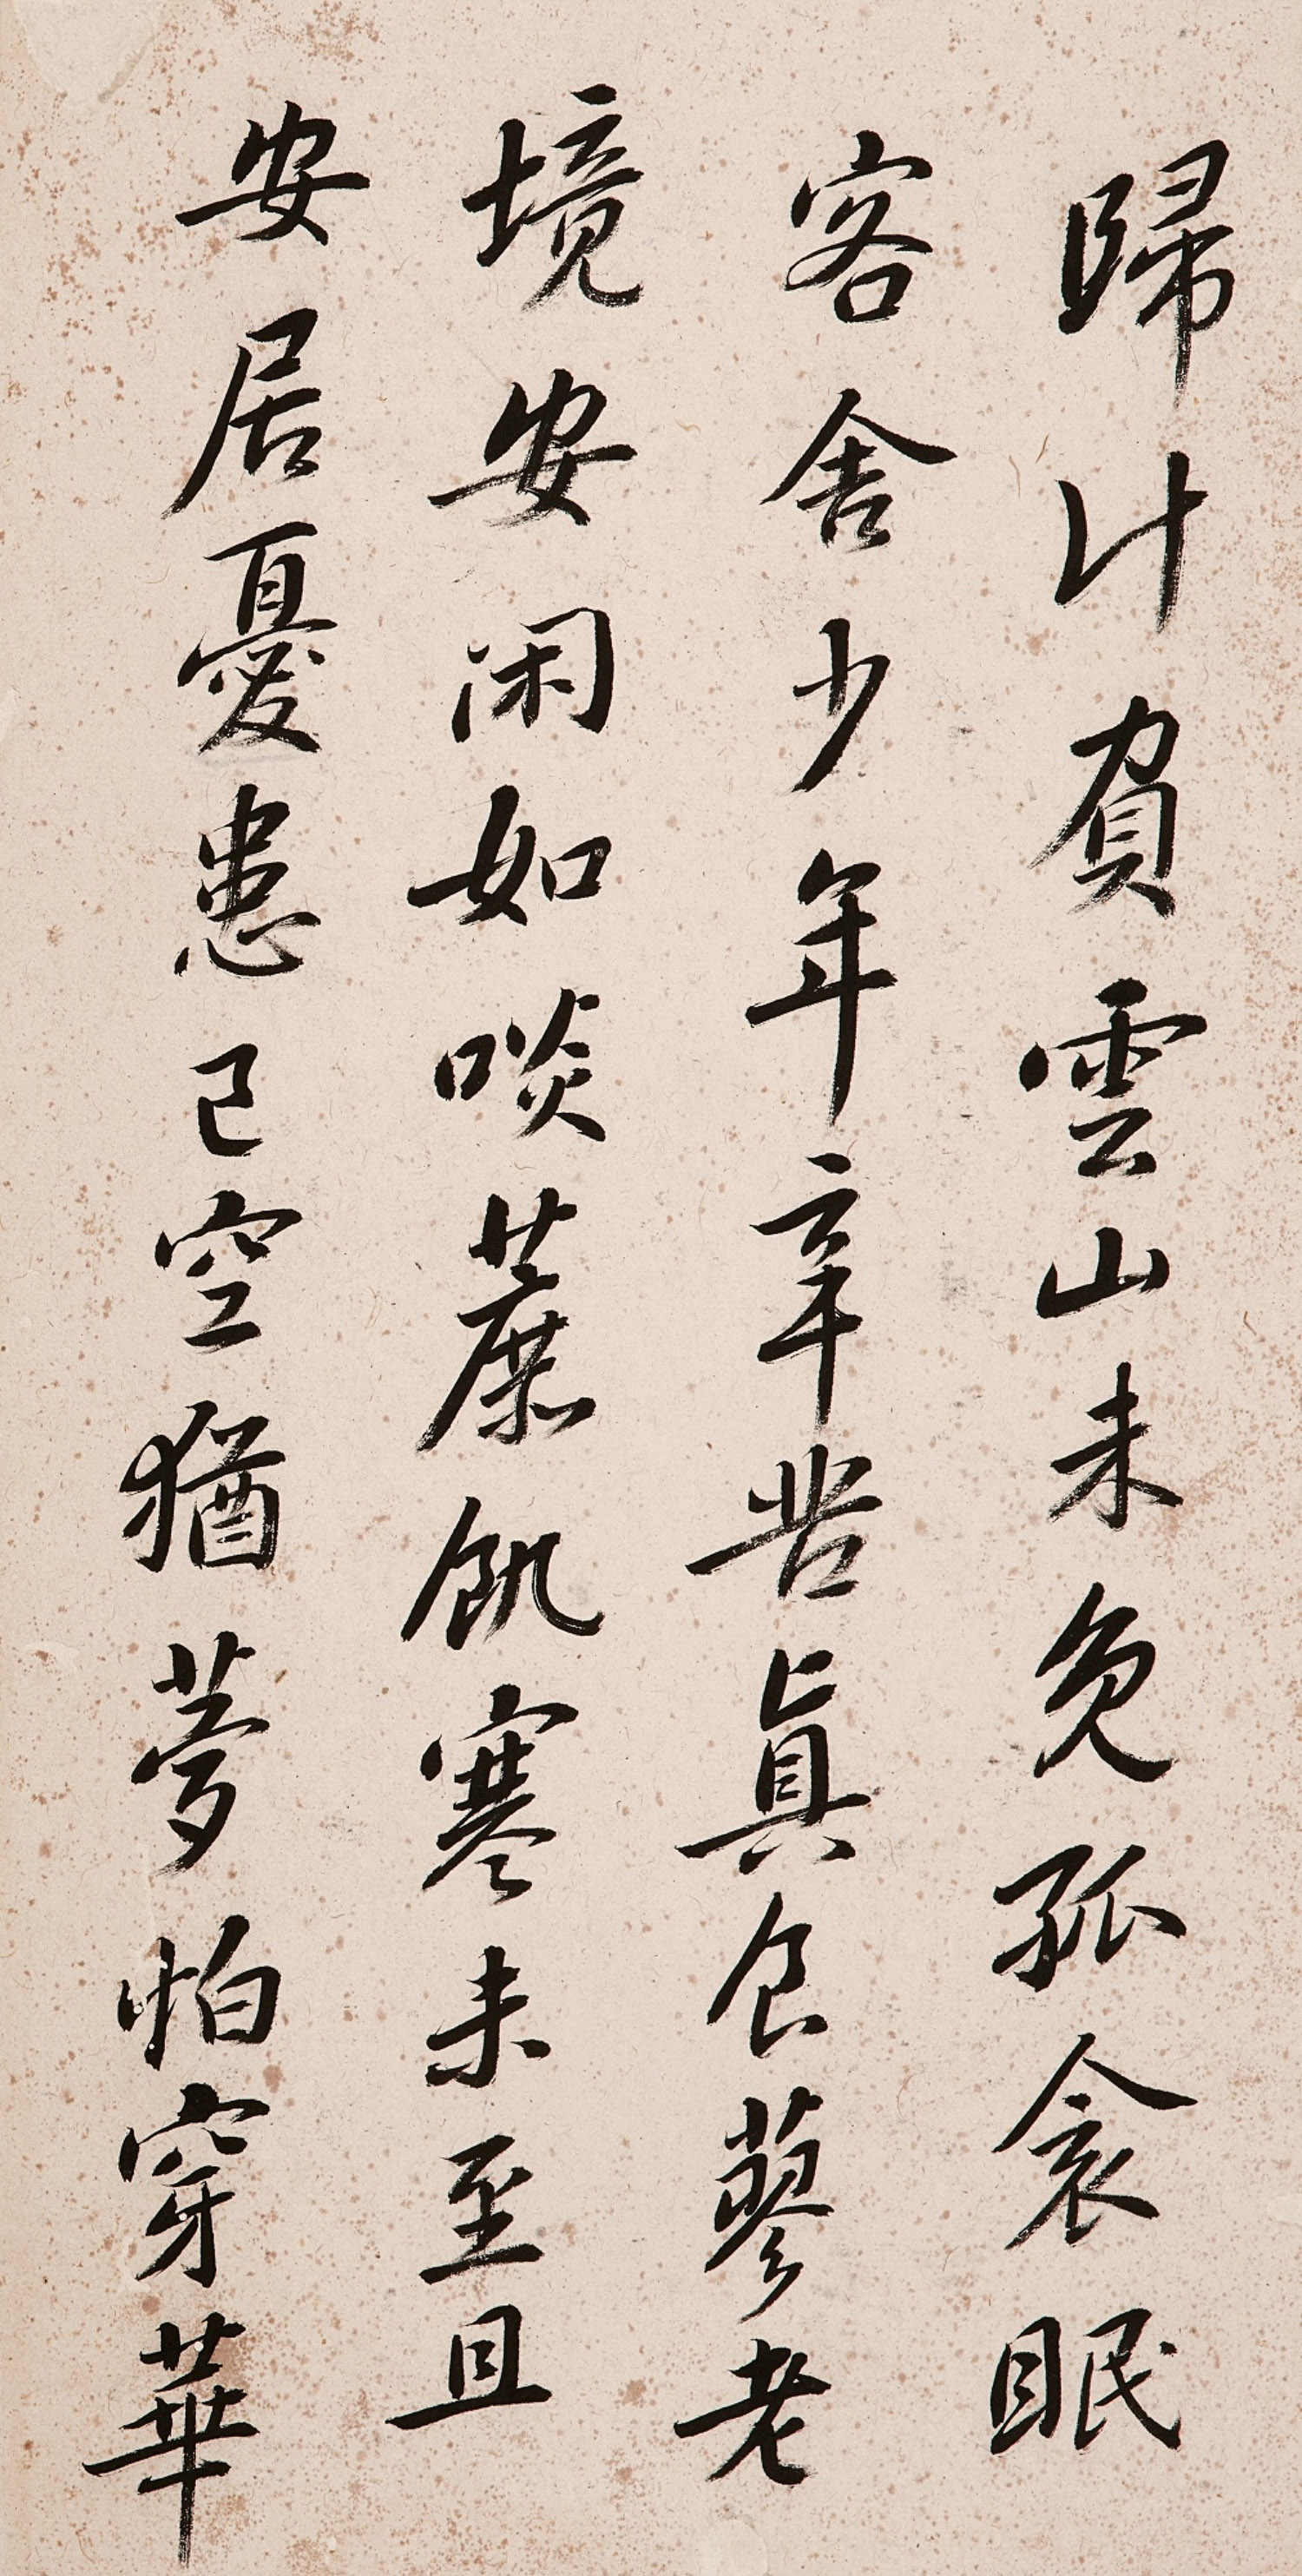 歸計負雲山未免孤衾眠
客舍少年辛苦真食蓼老
境安閑如啖蔗飢寒未至且
安居憂患已空猶夢怕穿華